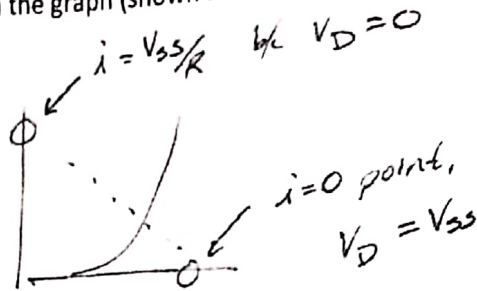 the graph (shown
i = Vss/R b/c VD = 0
i=0 point,
VD = Vss